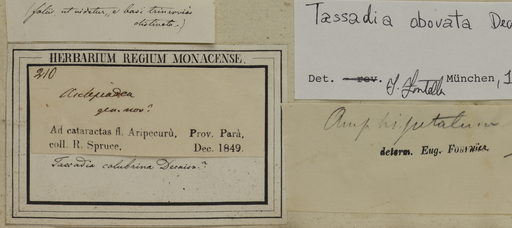 (folia ut videtur, e basi trinervia
distincta.)
HERBARIUM REGIUM MONACENSE.
210
Asclepiadea
gen. nov?
Ad cataractas fl. Aripecurù, Prov. Parà,
coll. R. Spruce. Dec. 1849.
Tassadia colubrina Decaisn.?
Tassadia obovata Dec
Det. rev. J. Fontella München, 1
Amphipetalum
determ. Eug. FOURNIER.